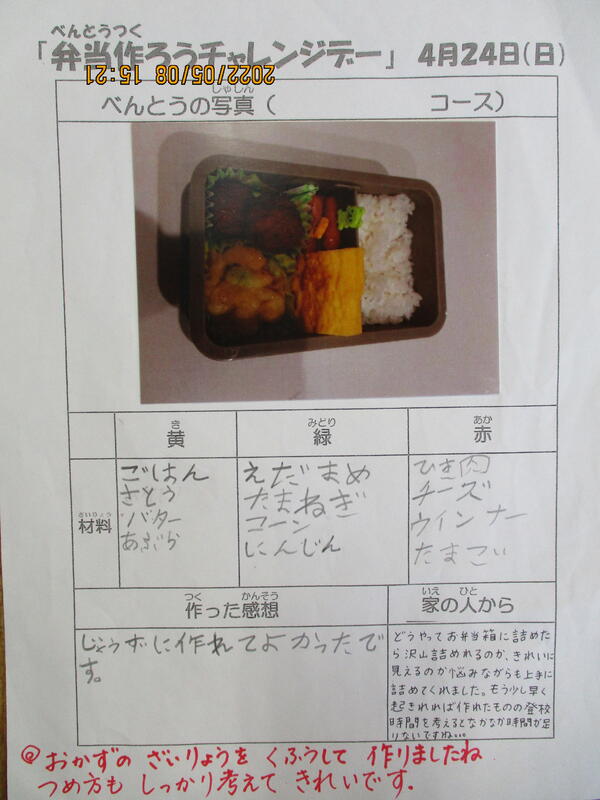 べんとうつく
「弁当作ろうチャレンジデー」 4月24日(日)
2022/05/08 15:21
しゃしん
べんとうの写真( コース)
き みどり あか
黄 緑 赤
ざいりょう
材料
ごはん
さとう
バター
あぶら
えだまめ
たまねぎ
コーン
にんじん
ひき肉
チーズ
ウインナー
たまご
つく かんそう
作った感想
いえ ひと
家の人から
じょうずに作れてよかったで
す。
どうやってお弁当箱に詰めた
ら沢山詰めれるのか、きれいに
見えるのか悩みながらも上手に
詰めてくれました。もう少し早く
起きれれば作れたものの登校
時間を考えるとなかなか時間が足
りないですね…
@おかずの ざいりょうを くふうして 作りましたね
つめ方も しっかり考えて きれいです.